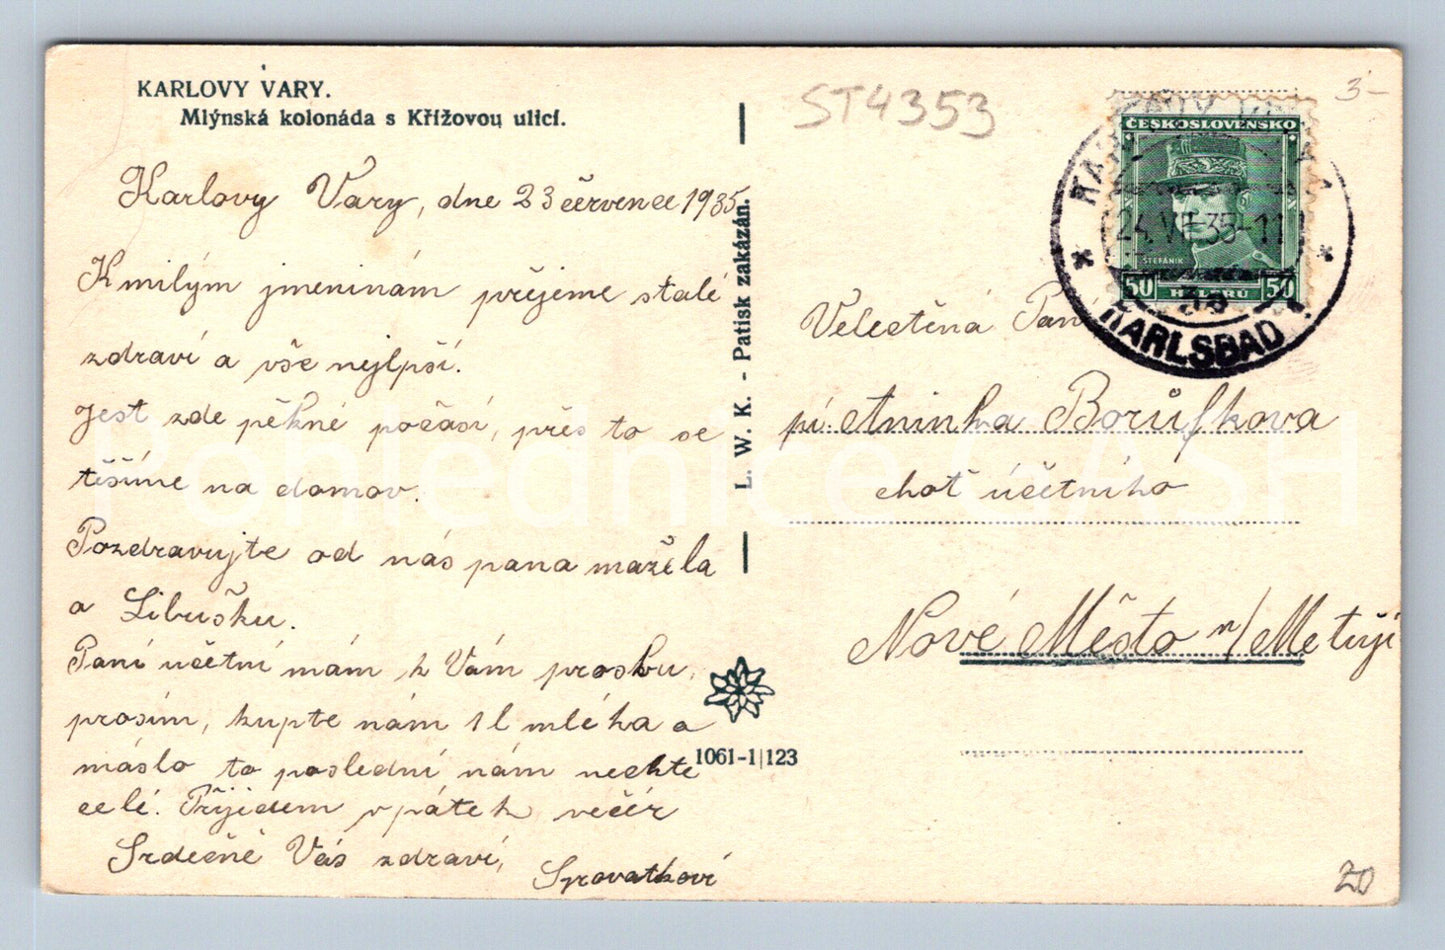 KARLOVY VARY.
Mlýnská kolonáda s Křížovou ulicí.
Karlovy Vary, dne 23 července 1935
K milým jmeninám přejeme stalé
zdraví a vše nejlpší.
Jest zde pěkné počásí, přes to se
těšíme na domov.
Pozdravujte od nás pana mažela
a Libušku.
Paní učetní mám k Vám prosbu,
prosím, kupte nám 1 l mléka a
máslo to poslední nám nechte
celé. Přijedem v pátek večér
Srdečně Vás zdraví,
Syrovatkovi
L. W. K. - Patisk zakázán.
1061-1|123
ST4353
3-
ČESKOSLOVENSKO
ŠTEFÁNIK
50 HALÉŘŮ 50
KARLOVY VARY
24.VII.35-11
3a
KARLSBAD
Velectěná Paní
pí. Aninka Borůfkova
choť účetního
Nové Město n/Metují
20
Pohlednice GASH